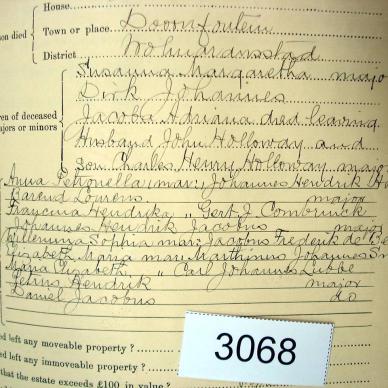 House
on died Town or place. Doornfontein
District Wolmaransstad
Susanna Margaretha major
Dirk Johannes
en of deceased Jacoba Adriana died leaving
ajors or minors Husband John Holloway and
son Charles Henry Holloway major
Anna Petronella, mar: Johannes Hendrik H
Barend Lourens major
Francina Hendrika „ Gert J. Combrinck
Johannes Hendrik Jacobus major
Willemina Sophia mar: Jacobus Frederik de Be
Elizabeth Maria mar: Marthinus Johannes Sm
Maria Elizabeth „ Carl Johannes Lubbe
Petrus Hendrik major
Daniel Jacobus do
ed left any moveable property ?
ed left any immoveable property ?
that the estate exceeds £100 in value ?
3068